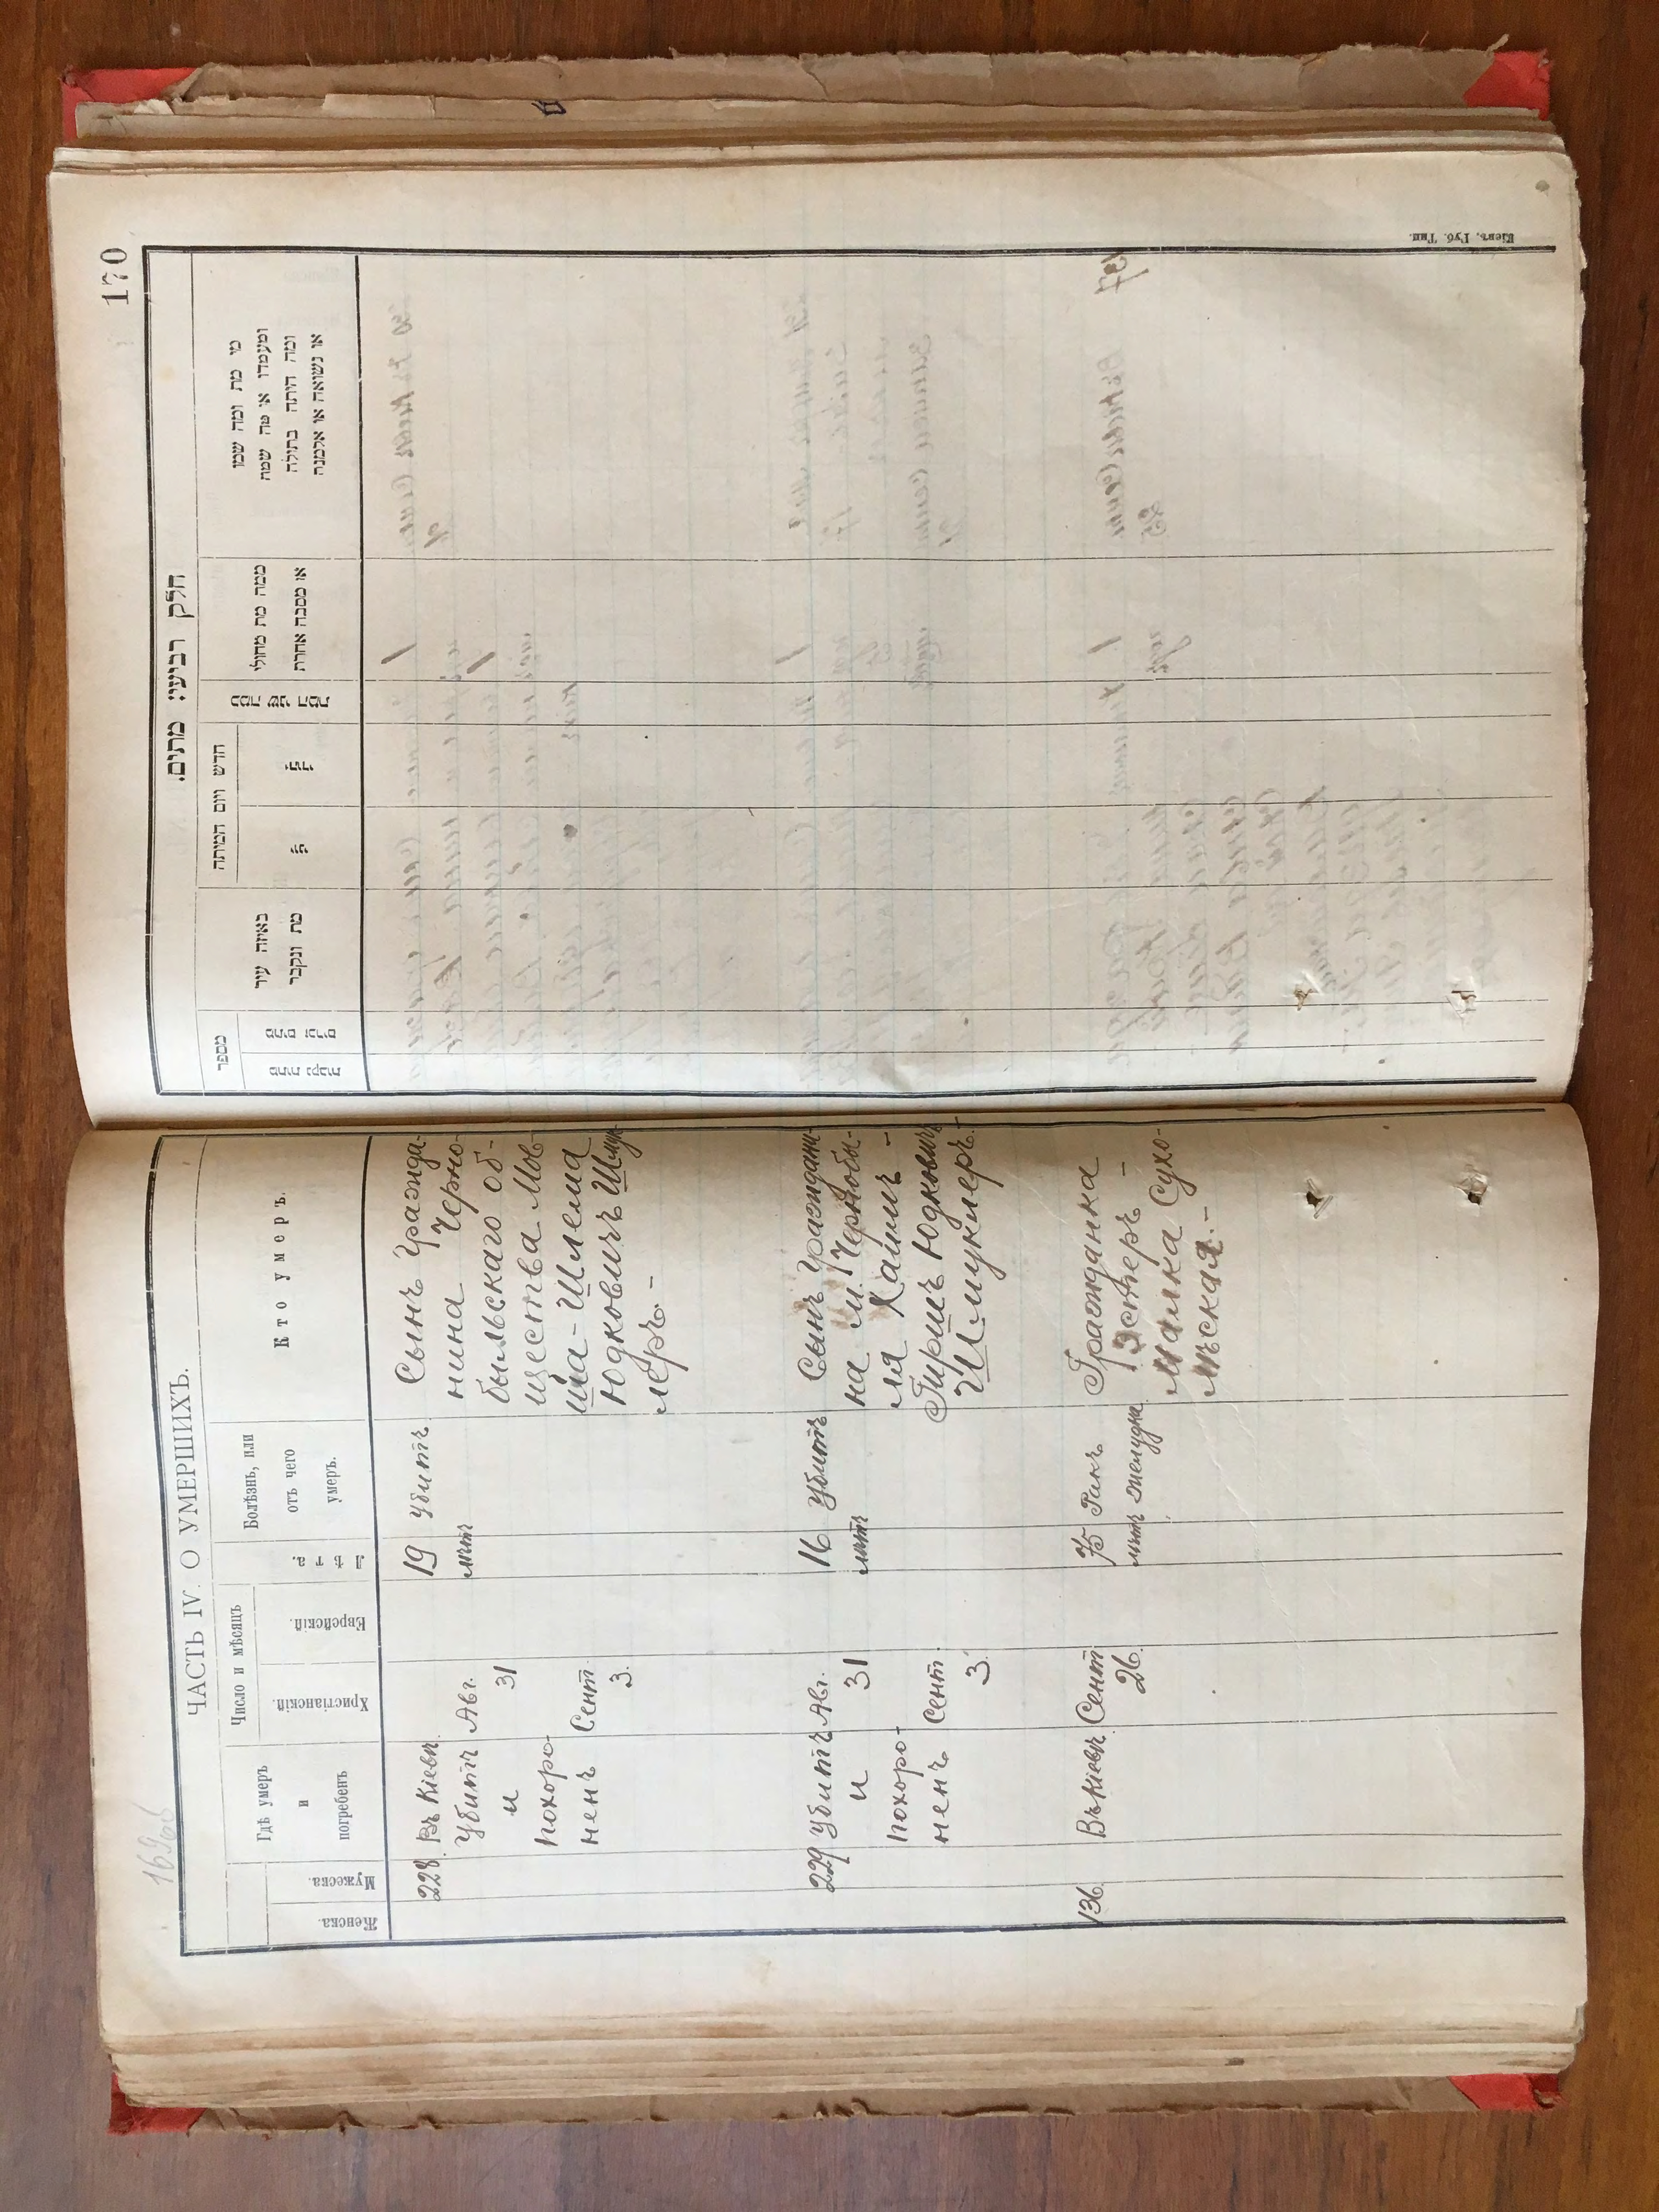 169об
ЧАСТЬ IV. О УМЕРШИХЪ.
Женска.
Мужеска.
Гдѣ умеръ
и
погребенъ
Число и мѣсяцъ
Христіанскій.
Еврейскій.
Лѣта.
Болѣзнь, или
отъ чего
умеръ.
Кто умеръ.
228.
Въ Кіевѣ.
Убитъ
и
похоро-
ненъ
Авг.
31
Сент.
3.
19
лѣтъ
Убитъ
Сынъ гражда-
нина Черно-
быльскаго об-
щества Мов-
ша-Шлема
Юдковичъ Шмук-
леръ.-
229
Убитъ
и
похоро-
ненъ
Авг.
31
Сент.
3.
16
лѣтъ
Убитъ
Сынъ граждани-
на м. Чернобы-
ля Хаимъ-
Гиршъ Юдковичъ
Шмуклеръ.-
136.
Въ Кіевѣ.
Сент.
26.
75
лѣтъ
Ракъ
желудка
Гражданка
Эстеръ-
Малка Сухо-
мѣская.-
170
חלק רביעי מתים.
מספר
מתות נקבות
מתים זכרים
באיזה עיר
מת ונקבר
חדש ויום המיתה
כמה שני המת
ממה מת מחולי
או מסבה אחרת
מי מת ומה שמו
ומעמדו או מה שמה
ומה היתה בתולה
או נשואה או אלמנה
Кіевъ, Губ. Тип.